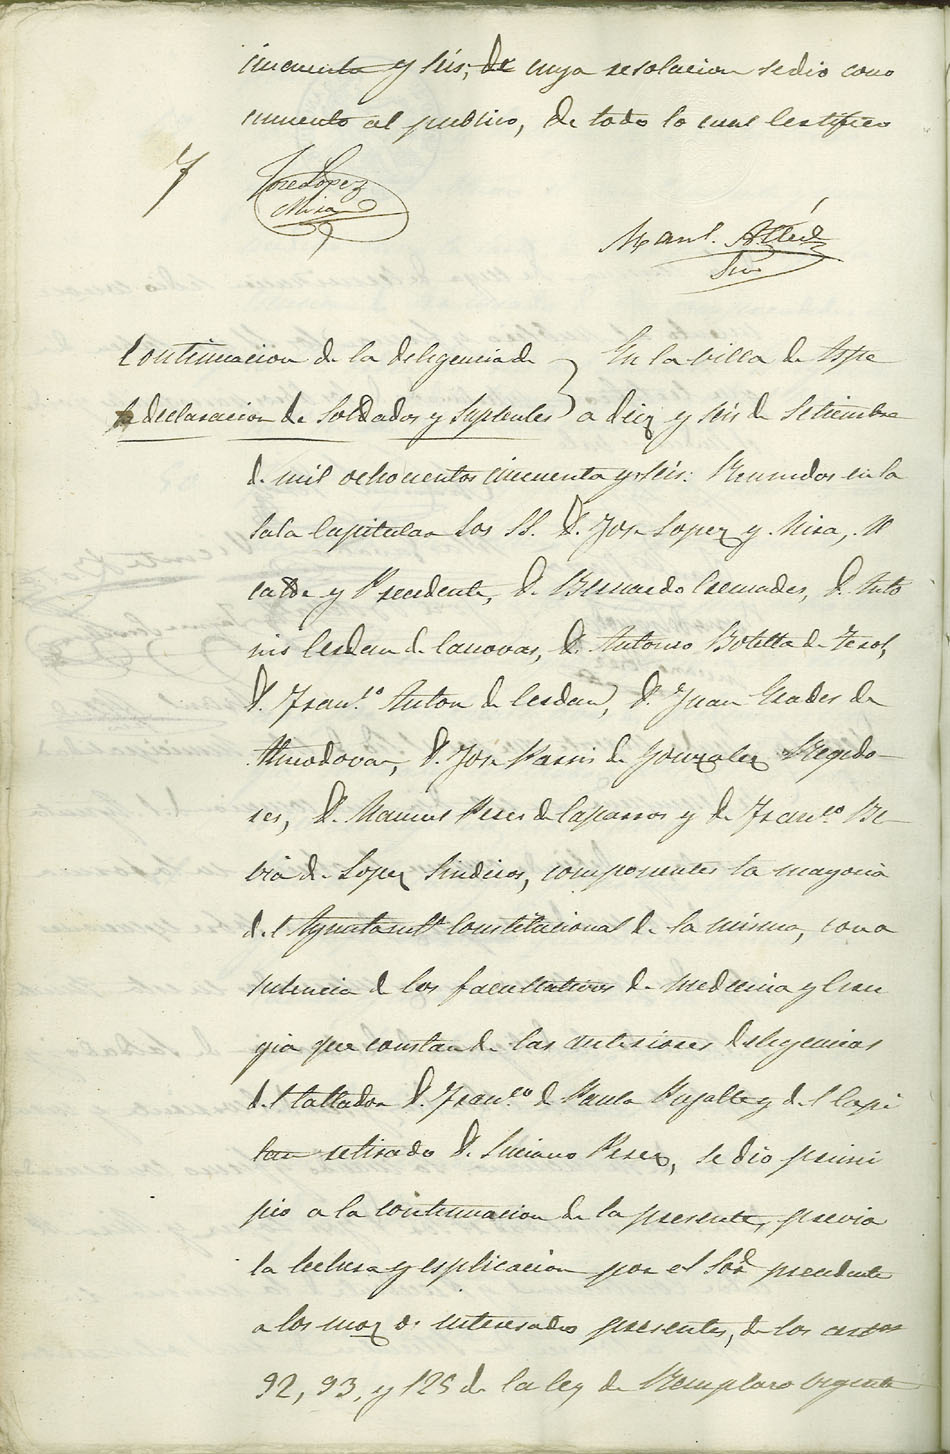 cincuenta y seis; de cuya resolucion se dio cono
cimiento al publico, de todo lo cual certifico
Jose Lopez
Mira
Manl.
Srio
Continuacion de la deligencia de
la declaracion de Soldados y Suplentes
En la villa de Aspe
a diez y seis de Setiembre
de mil ochocientos cincuenta y seis: Reunidos en la
Sala Capitular los SS. D. Jose Lopez y Mira, Al
calde y Precidente, D. Bernardo Cremades, D. Anto
nio Cerdan de Canovas, D. Antonio Botella de Terol,
D. Franco. Anton de Cerdan, D. Juan Prades de
Almodovar, D. Jose Pastor de Gonzalez Regido-
res, D. Manuel Peres de Caparros y D. Franco. Be-
via de Lopez Sindicos, componentes la mayoria
del Ayuntamto. Constitucional de la misma, con a
sistencia de los facultativos de medicina y Ciru
gia que constan de las anteriores deligencias
del tallador D. Franco. de Paula Pujalte y del Capi
tan retirado D. Luciano Perez, se dio princi
pio a la continuacion de la presente, previa
la lectura y esplicacion por el Sor. precidente
a los mozos interesados presentes, de los artos
92, 93, y 125 de la ley de Remplazo vigente